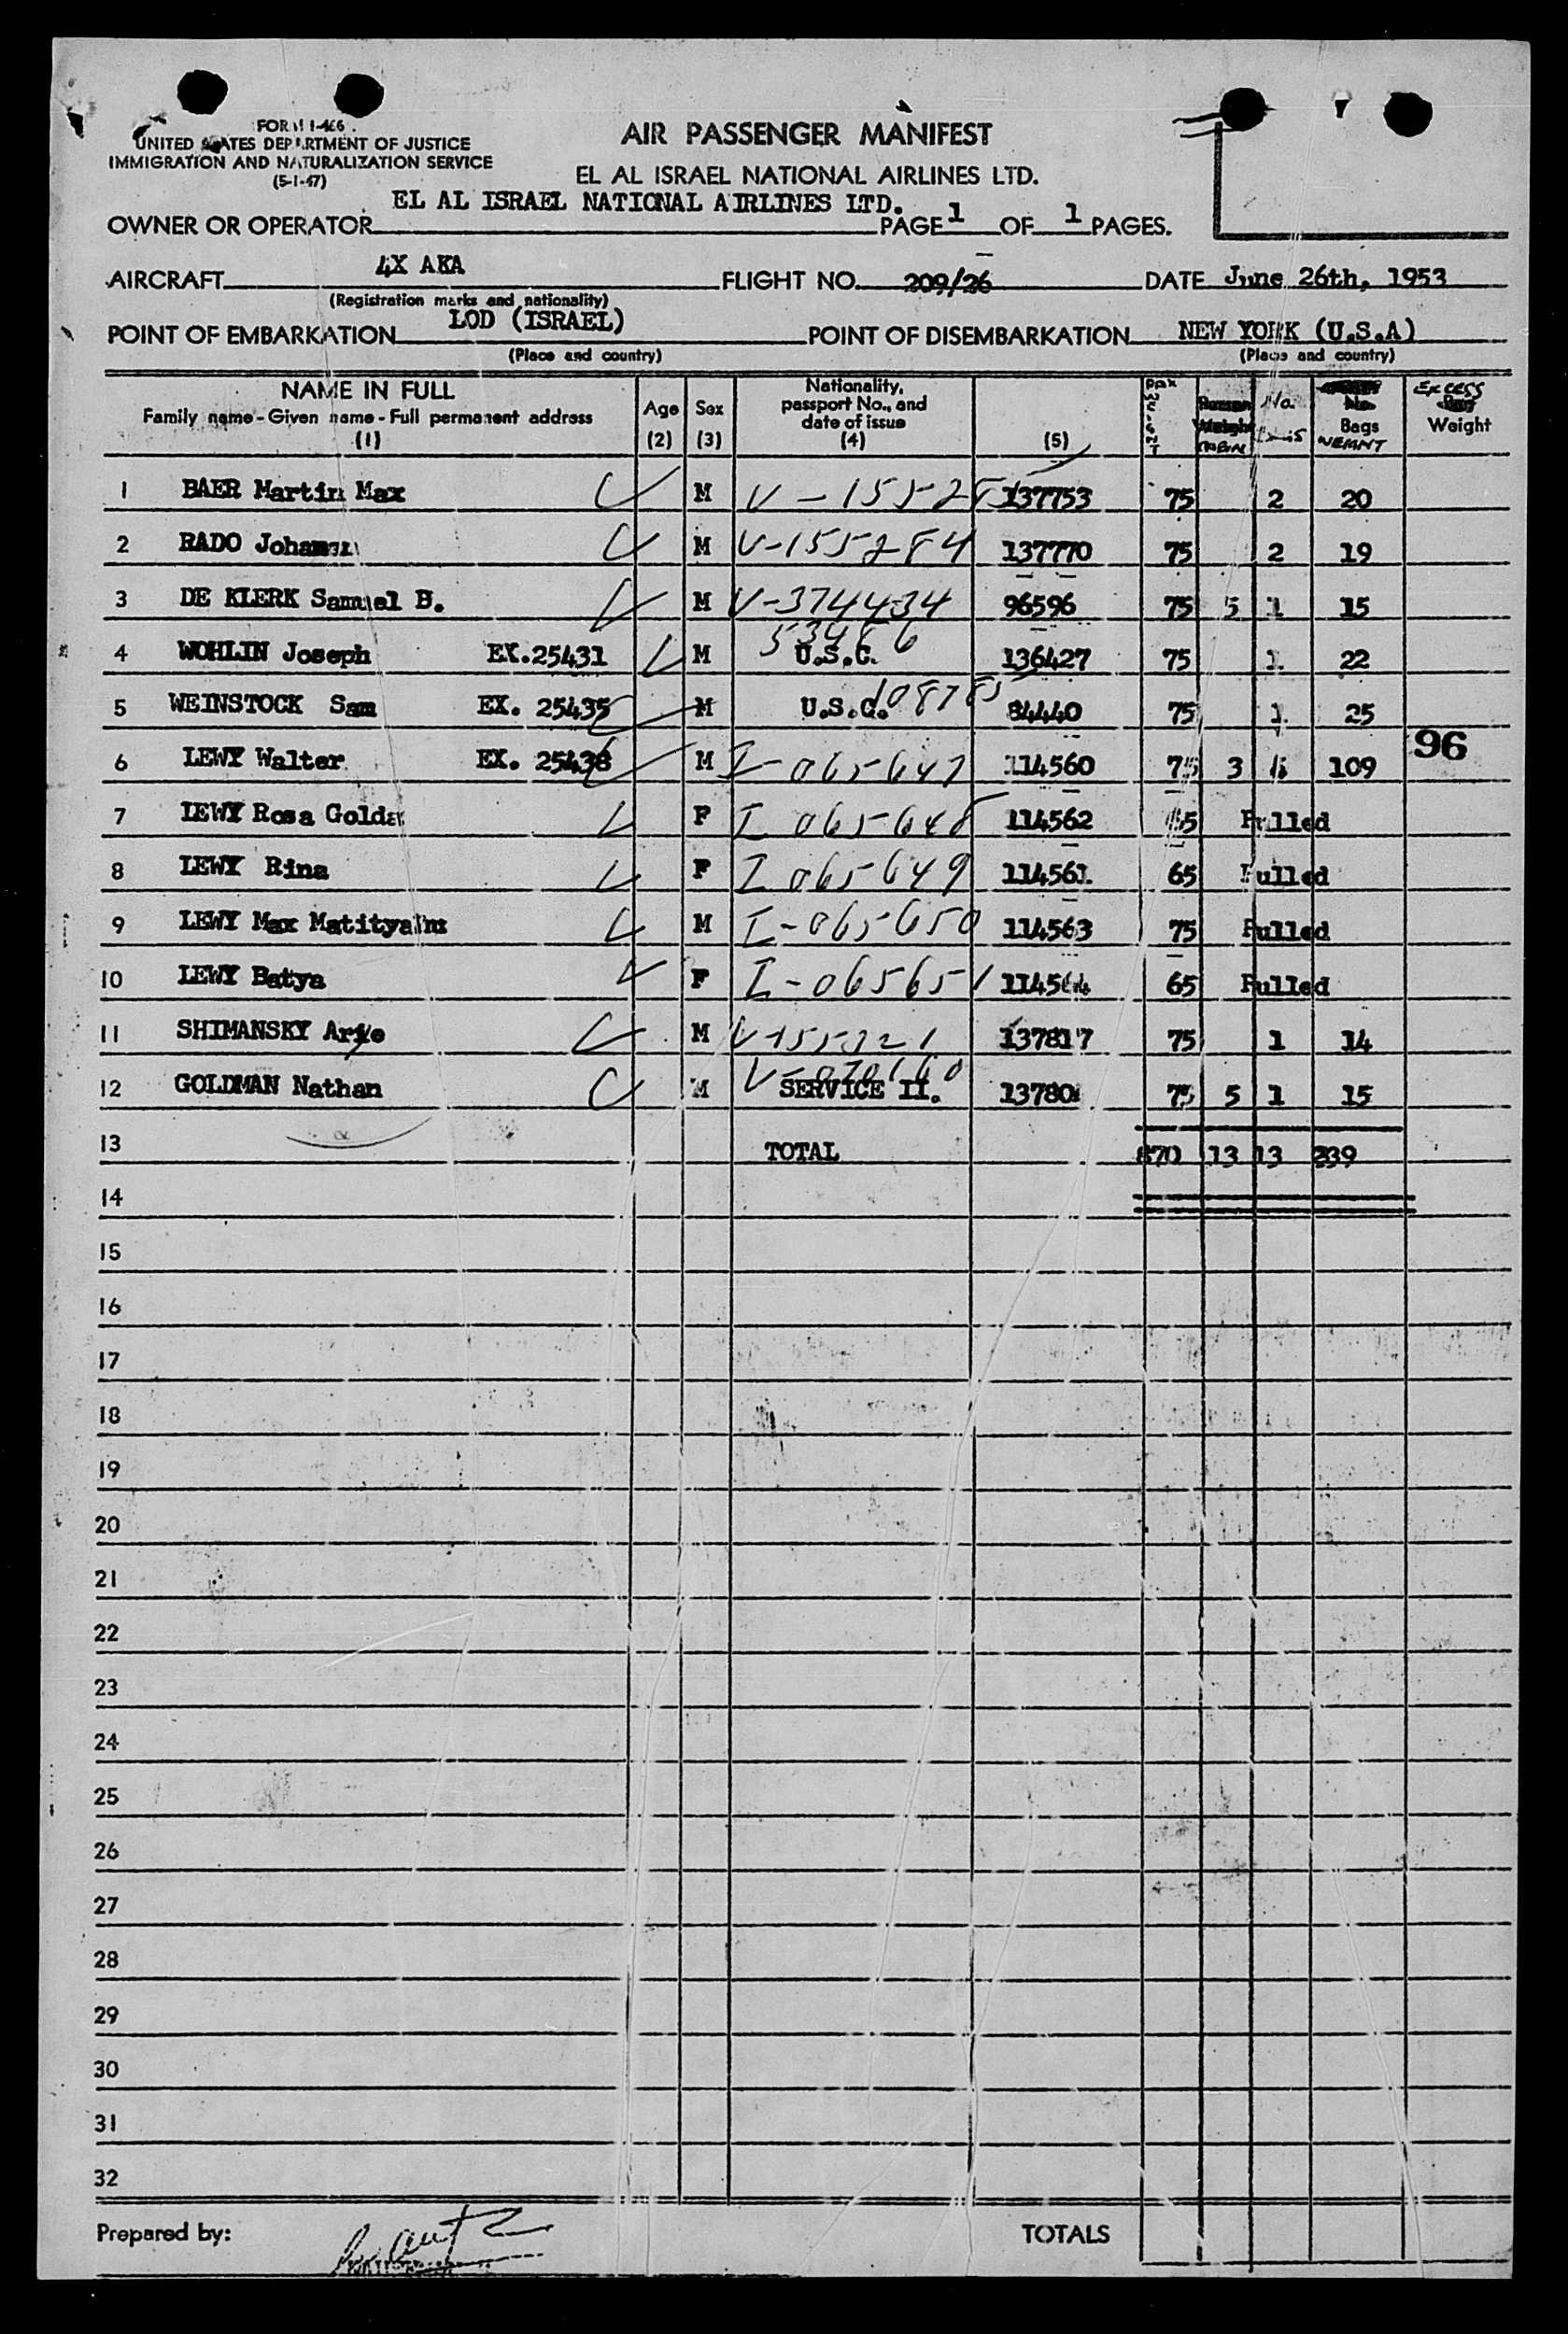 FORM I-466
UNITED STATES DEPARTMENT OF JUSTICE
IMMIGRATION AND NATURALIZATION SERVICE
(5-1-47)
AIR PASSENGER MANIFEST
EL AL ISRAEL NATIONAL AIRLINES LTD.
OWNER OR OPERATOR EL AL ISRAEL NATIONAL AIRLINES LTD. PAGE 1 OF 1 PAGES.
AIRCRAFT 4X AKA FLIGHT NO. 209/26 DATE June 26th, 1953
(Registration marks and nationality)
POINT OF EMBARKATION LOD (ISRAEL) POINT OF DISEMBARKATION NEW YORK (U.S.A)
(Place and country) (Place and country)
NAME IN FULL
Family name - Given name - Full permanent address
(1)
Age
(2)
Sex
(3)
Nationality,
passport No., and
date of issue
(4)
(5)
PAX WEIGHT
CABIN
No.
No.
Bags
WEIGHT
EXCESS
Weight
1 BAER Martin Max M V-15528 137753 75 2 20
2 RADO M V-155284 137770 75 2 19
3 DE KLERK Samuel B. M V-374434 96596 75 5 1 15
4 WOHLIN Joseph EX.25431 M 53486 U.S.C. 136427 75 1 22
5 WEINSTOCK Sam EX. 25435 M U.S.C. 10878 84440 75 1 25
6 LEWY Walter EX. 25438 M I-065647 114560 75 3 109 96
7 LEWY Rosa Golda F I 065648 114562 65 Pulled
8 LEWY Rina F I 065649 114561 65 Pulled
9 LEWY Max M I-065650 114563 75 Pulled
10 LEWY Batya F I-065651 114564 65 Pulled
11 SHIMANSKY Arye M 137817 75 1 14
12 GOLDMAN Nathan M SERVICE II. 75 5 1 15
13 TOTAL 870 13 13 239
14
15
16
17
18
19
20
21
22
23
24
25
26
27
28
29
30
31
32
Prepared by: TOTALS